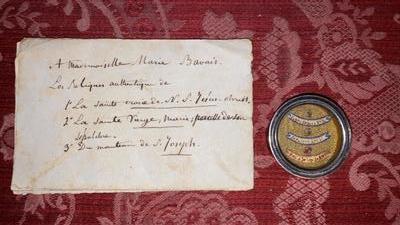 A Mademoiselle Marie Bavais.
Les Reliques authentique de
1° La sainte croix de N. S. Jésus-christ.
2° La sainte Vierge, Marie, parcelle de son
sépulchre.
3° Du manteau de S. Joseph.